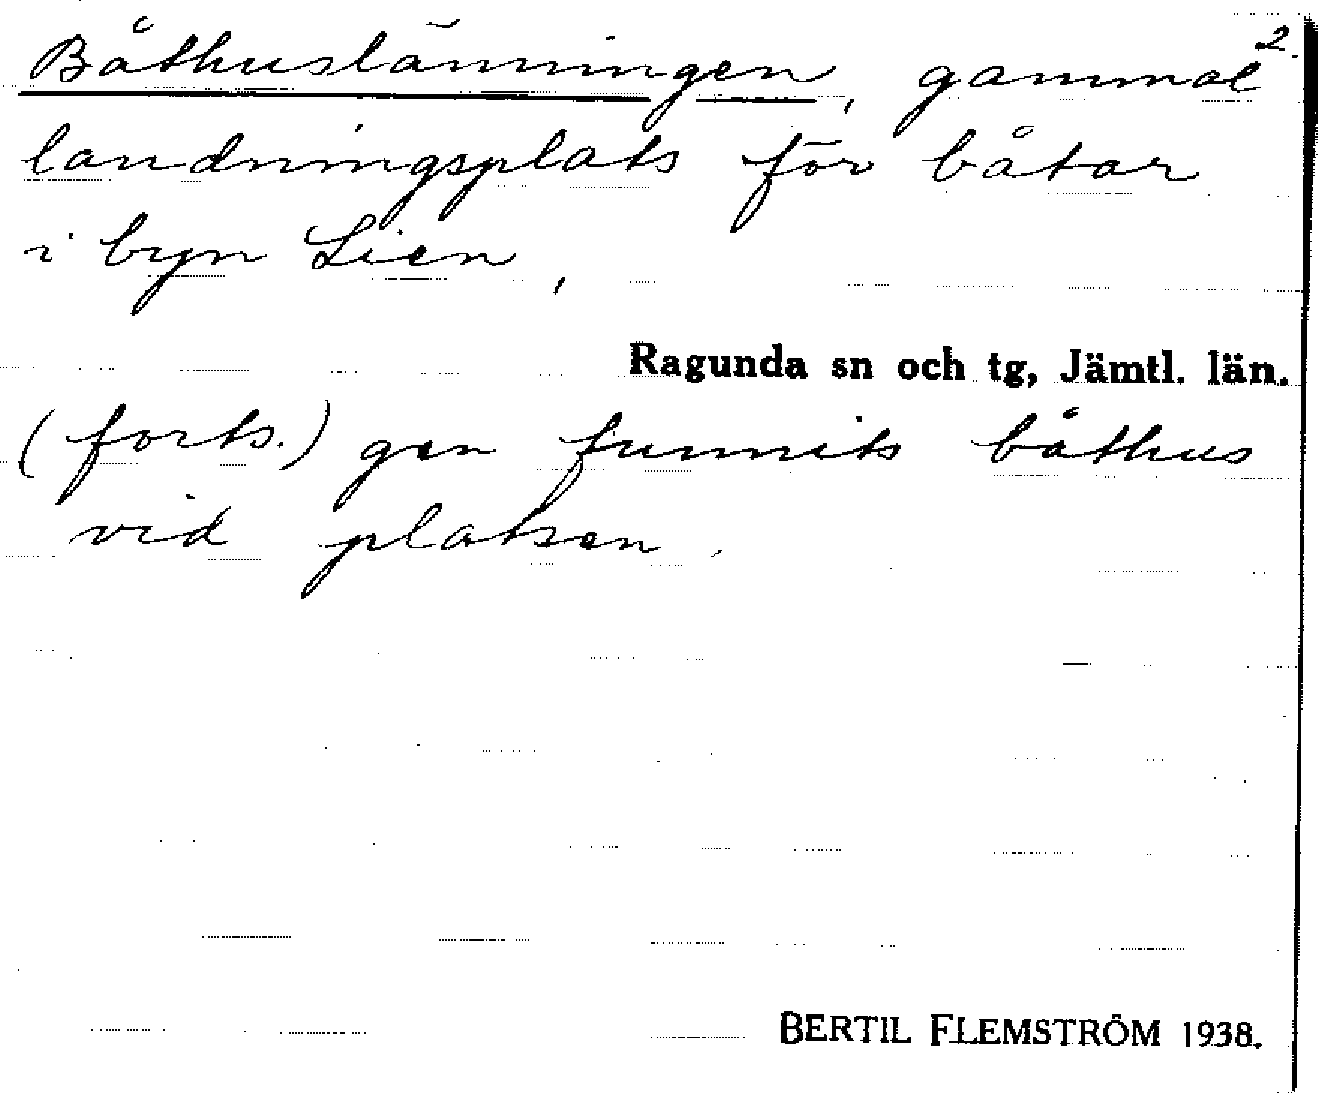 2.
Båthuslänningen, gammal
landningsplats för båtar
i byn Lien,
Ragunda sn och tg, Jämtl. län.
(forts.) gen funnits båthus
vid platsen.
BERTIL FLEMSTRÖM 1938.